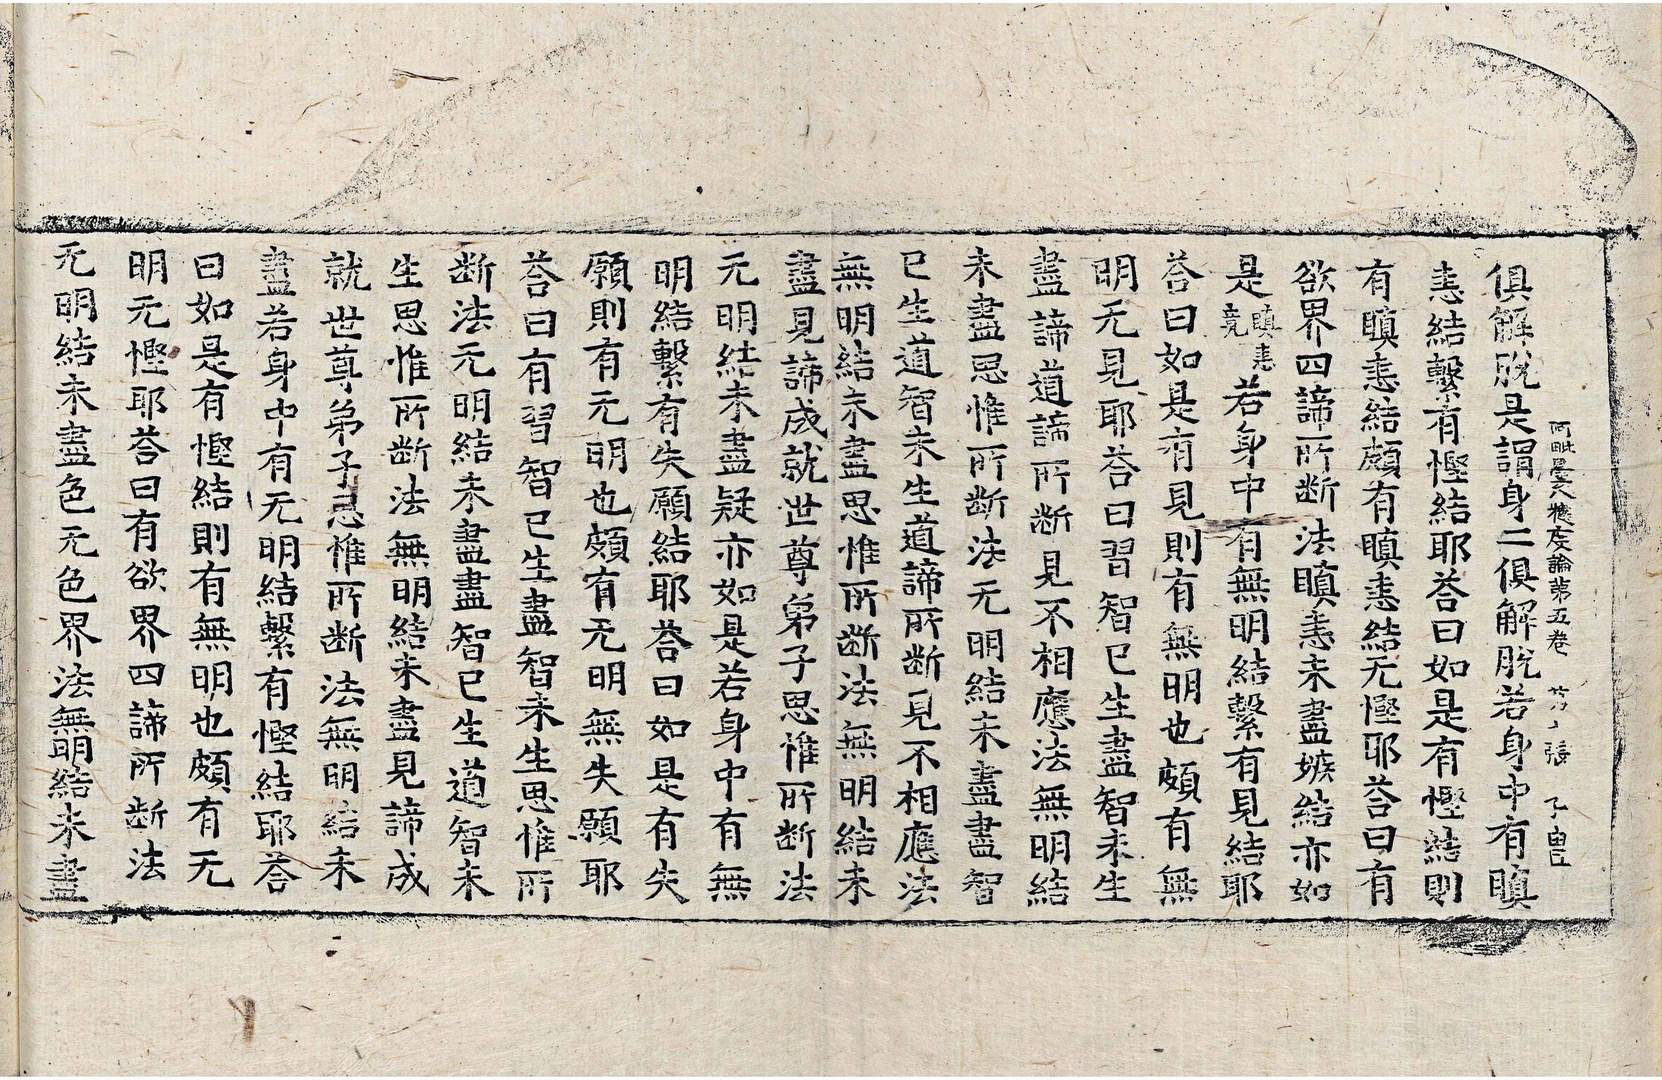 阿毗曇八揵度論苐五卷
俱解脫是謂身二俱解脫若身中有瞋
恚結繫有慳結耶荅曰如是有慳結則
有瞋恚結頗有瞋恚結无慳耶荅曰有
欲界四諦所断法瞋恚未盡嫉結亦如
是瞋恚竟若身中有無明結繫有見結耶
荅曰如是有見則有無明也頗有無
明无見耶荅曰習智已生盡智未生
盡諦道諦所断見不相應法無明結
未盡思惟所断法无明結未盡盡智
已生道智未生道諦所断見不相應法
無明結未盡思惟所断法無明結未
盡見諦成就世尊弟子思惟所断法
无明結未盡疑亦如是若身中有無
明結繫有失願結耶荅曰如是有失
願則有无明也頗有无明無失願耶
荅曰有習智已生盡智未生思惟所
断法无明結未盡盡智已生道智未
生思惟所断法無明結未盡見諦成
就世尊弟子思惟所断法無明結未
盡若身中有无明結繫有慳結耶荅
曰如是有慳結則有無明也頗有无
明无慳耶荅曰有欲界四諦所断法
无明結未盡色无色界法無明結未盡